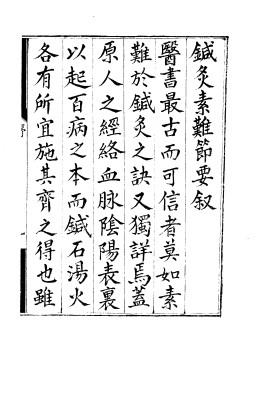 鍼灸素難節要叙
醫書最古而可信者莫如素
難於鍼灸之訣又獨詳焉蓋
原人之經絡血脉陰陽表裏
以起百病之本而鍼石湯火
各有所宜施其齊之得也雖
序